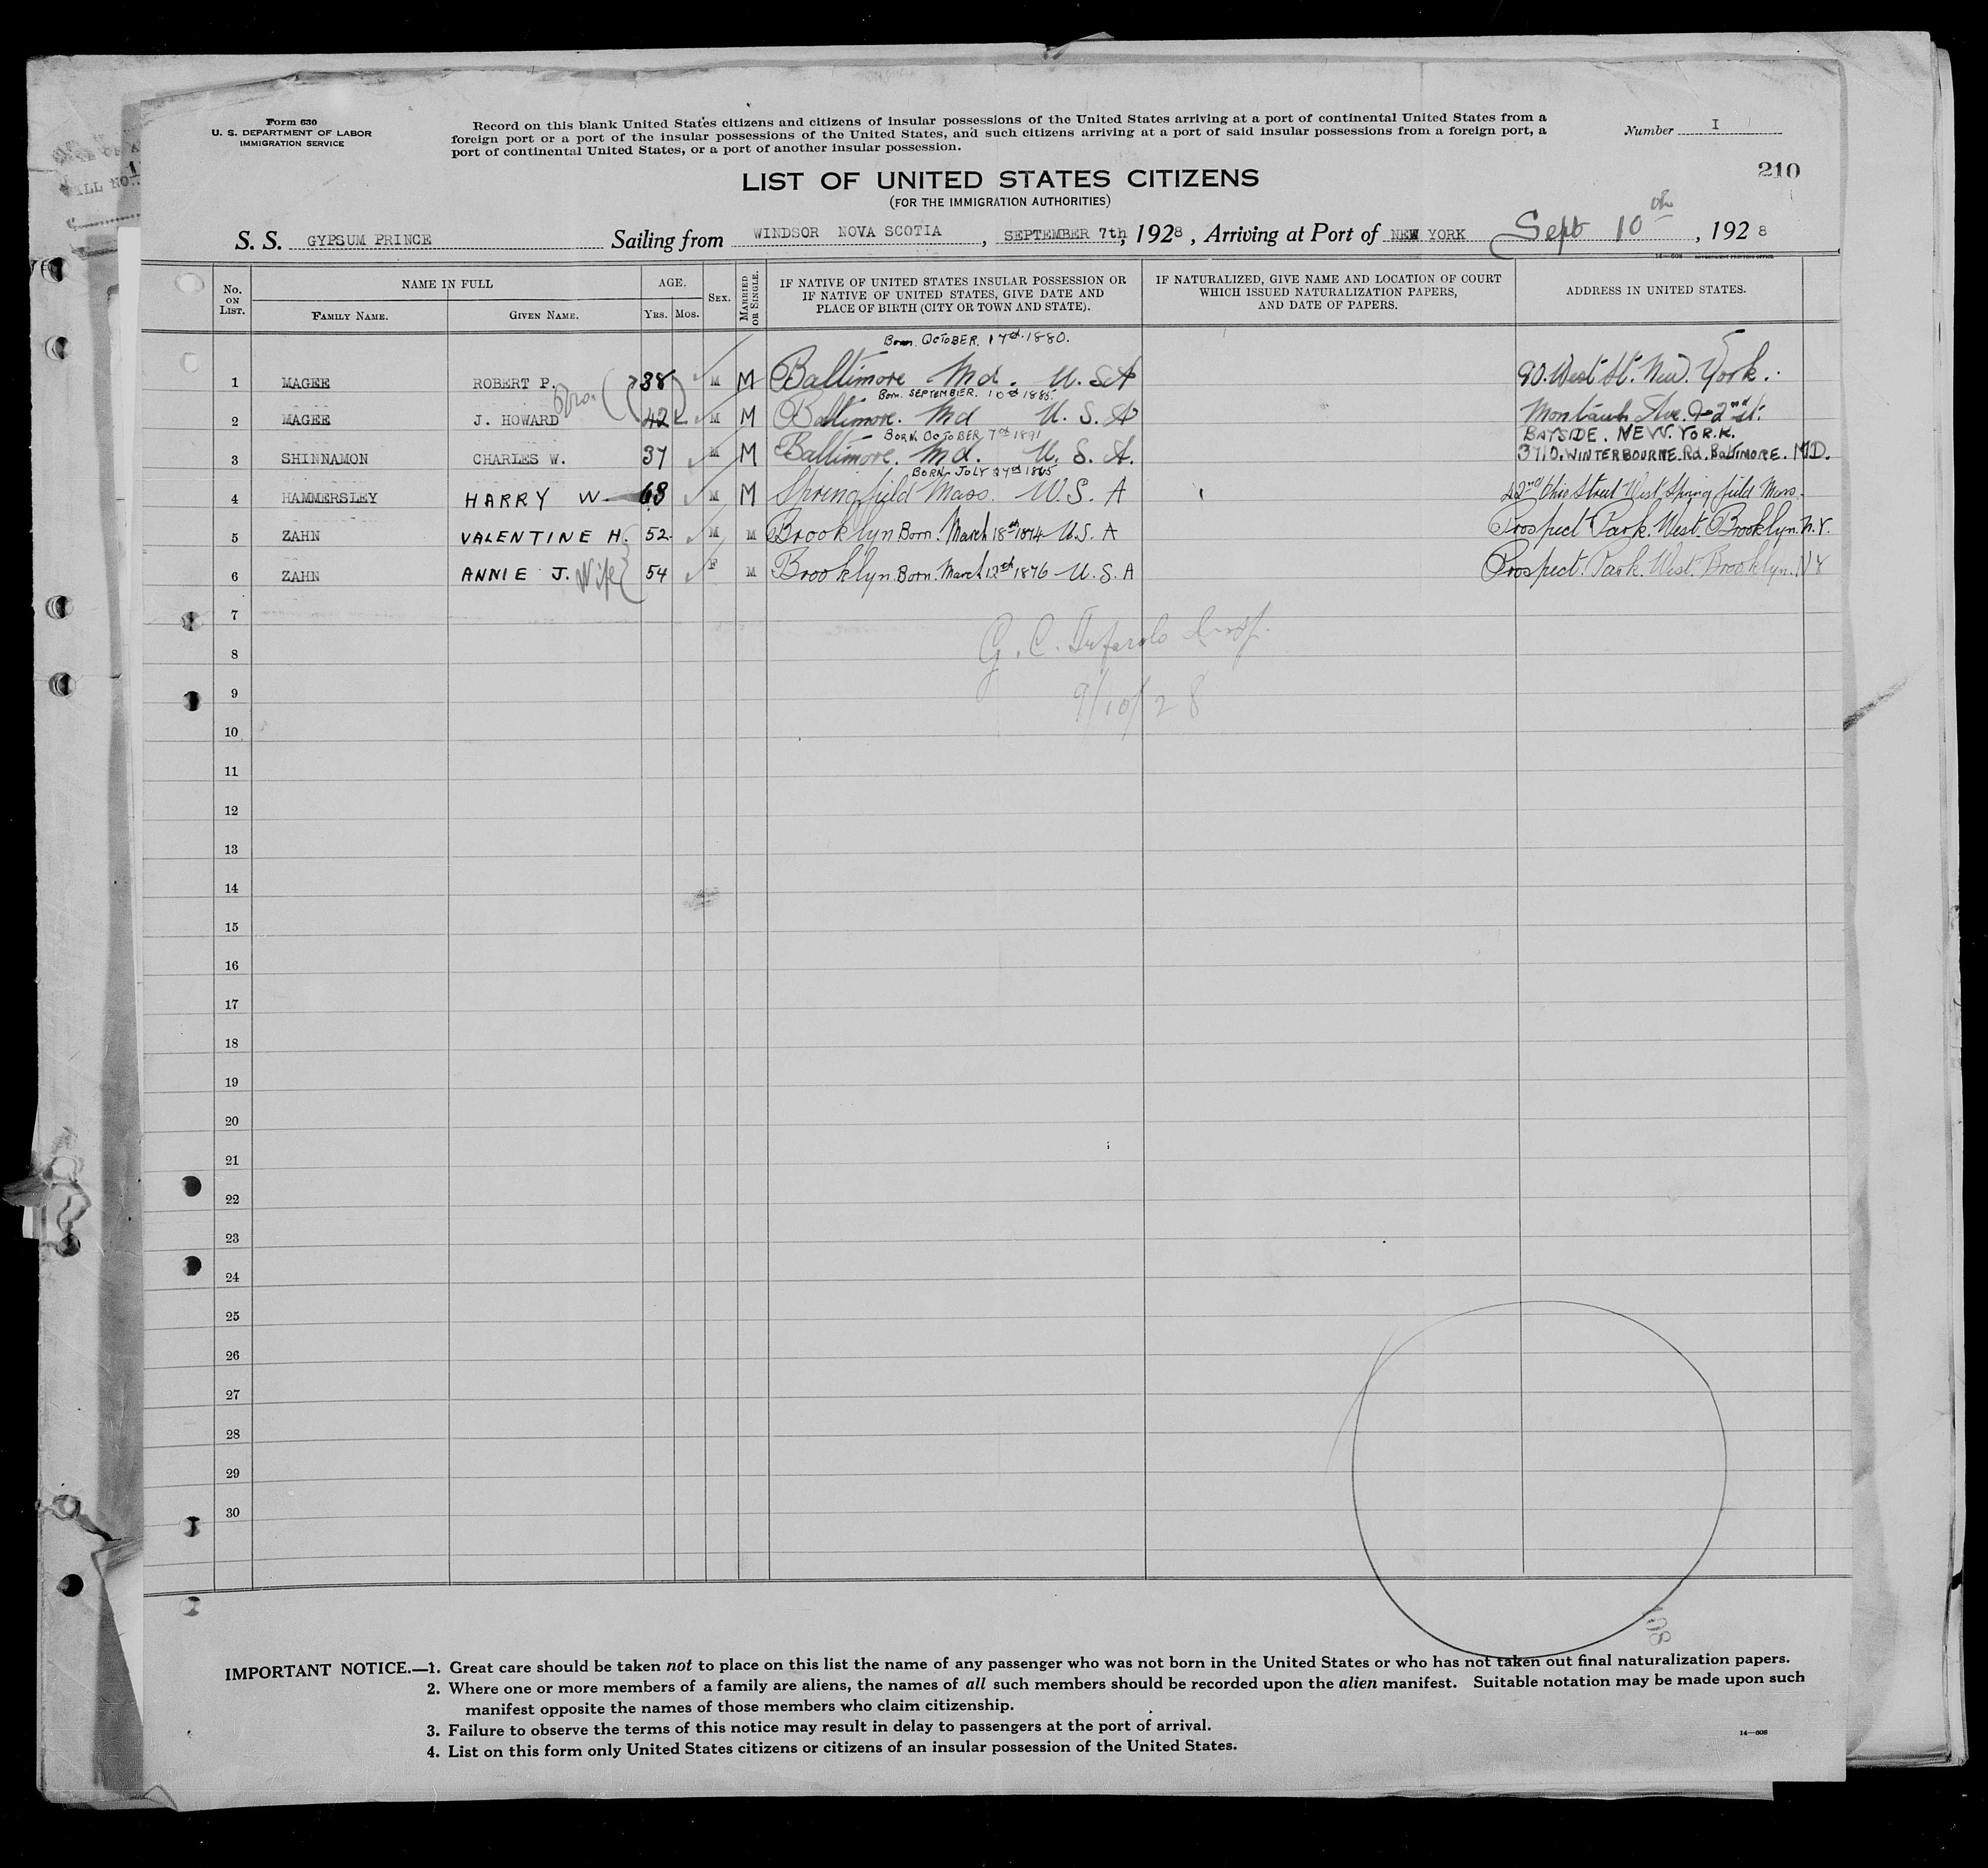 Form 630
U. S. DEPARTMENT OF LABOR
IMMIGRATION SERVICE
Record on this blank United States citizens and citizens of insular possessions of the United States arriving at a port of continental United States from a
foreign port or a port of the insular possessions of the United States, and such citizens arriving at a port of said insular possessions from a foreign port, a
port of continental United States, or a port of another insular possession.
Number I
210
LIST OF UNITED STATES CITIZENS
(FOR THE IMMIGRATION AUTHORITIES)
S. S. GYPSUM PRINCE Sailing from WINDSOR NOVA SCOTIA, SEPTEMBER 7th, 1928, Arriving at Port of NEW YORK Sept 10th, 1928
14—608 GOVERNMENT PRINTING OFFICE
No. ON LIST. NAME IN FULL FAMILY NAME. GIVEN NAME. AGE. YRS. MOS. SEX. MARRIED OR SINGLE. IF NATIVE OF UNITED STATES INSULAR POSSESSION OR IF NATIVE OF UNITED STATES, GIVE DATE AND PLACE OF BIRTH (CITY OR TOWN AND STATE). IF NATURALIZED, GIVE NAME AND LOCATION OF COURT WHICH ISSUED NATURALIZATION PAPERS, AND DATE OF PAPERS. ADDRESS IN UNITED STATES.
Born. OCTOBER. 17th. 1880.
1 MAGEE ROBERT P. 38 M M Baltimore Md. U. S A 90. West St. New. York.
Bro.
Born. SEPTEMBER. 10th 1885.
2 MAGEE J. HOWARD 42 M M Baltimore. Md U. S. A Ave. & 2nd St.
BORN OCTOBER 7th 1891 BAYSIDE. NEW. YORK.
3 SHINNAMON CHARLES W. 37 M M Baltimore. Md. U. S. A. 3710. WINTERBOURNE. Rd. BALTIMORE. MD.
BORN JULY 1865
4 HAMMERSLEY HARRY W. 63 M M Springfield Mass. U. S. A Street West Springfield Mass.
5 ZAHN VALENTINE H. 52 M M Brooklyn Born. March 18th 1874 U.S. A Prospect Park. West. Brooklyn. N.Y.
6 ZAHN ANNIE J. Wife 54 F M Brooklyn. Born. March 12th 1876 U. S. A Prospect. Park. West. Brooklyn. N Y
7
G. C. Insp.
8
9
9/10/28
10
11
12
13
14
15
16
17
18
19
20
21
22
23
24
25
26
27
28
29
30
108
IMPORTANT NOTICE.—1. Great care should be taken not to place on this list the name of any passenger who was not born in the United States or who has not taken out final naturalization papers.
2. Where one or more members of a family are aliens, the names of all such members should be recorded upon the alien manifest. Suitable notation may be made upon such
manifest opposite the names of those members who claim citizenship.
3. Failure to observe the terms of this notice may result in delay to passengers at the port of arrival.
14—608
4. List on this form only United States citizens or citizens of an insular possession of the United States.